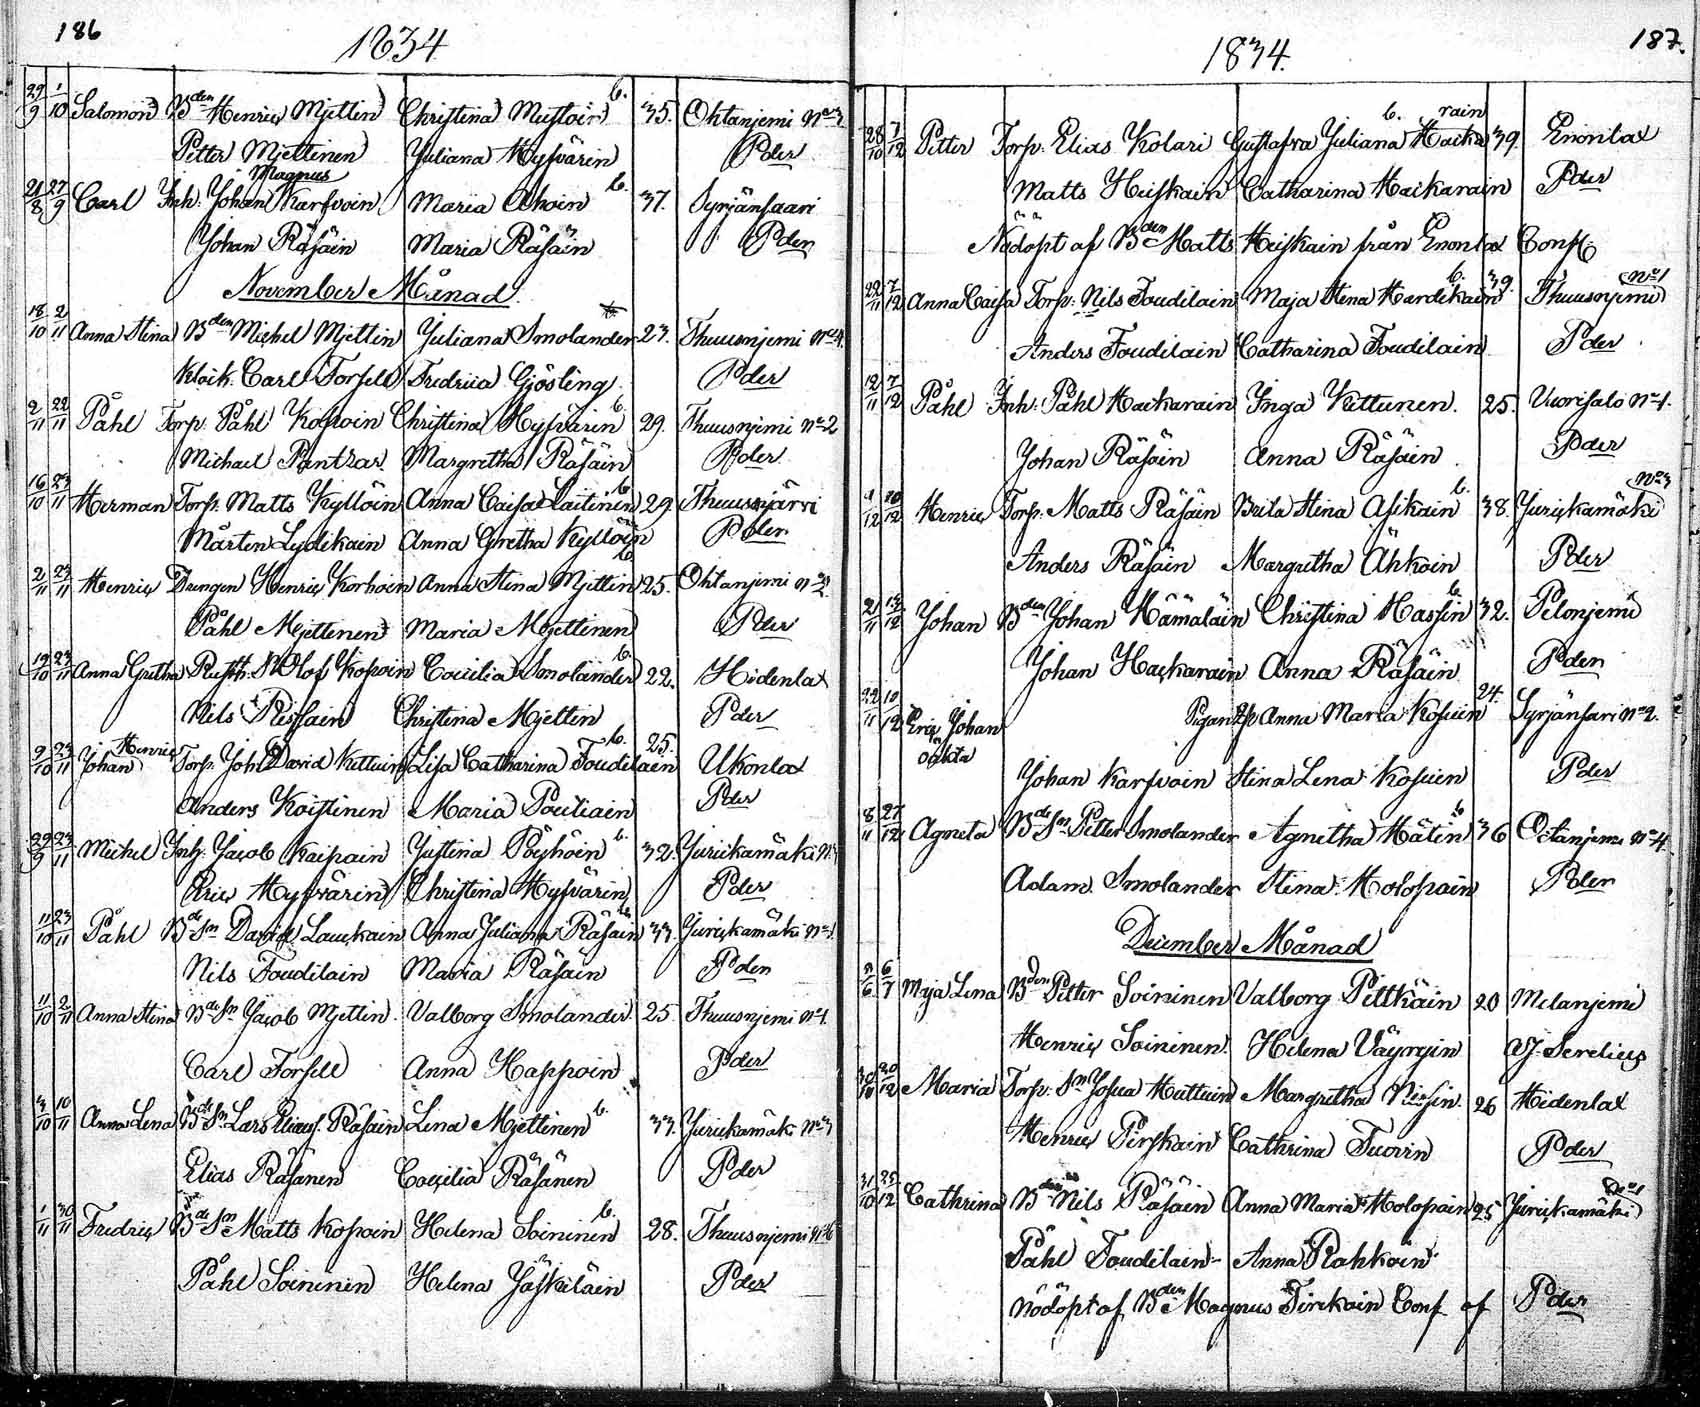 186
1834.
29/9 1/10 Salomon Bden Henric Mjettin Christina Mustoin b. 35. Ohtanjemi No 3
Petter Mjettinen Juliana Hyfvärin Pder
Magnus
21/8 27/9 Carl Inh: Johan Karfvoin Maria Ahoin b. 37. Syrjänsaari
Johan Räsäin Maria Räsäin Pder
November Månad.
18/10 2/11 Anna Stina Bden Michel Mjettin Juliana Smolander 23. Thuusnjemi No 4.
Klock. Carl Forsell Fredrica Gjösling Pder
2/11 22/11 Påhl Torp. Påhl Kopoin Christina Hyfvärin b. 29. Thuusnjemi No 2
Michael Pantzar Margretha Räsäin Pder
16/10 23/11 Herman Torp. Matts Kyllöin Anna Caisa Laitinen b. 29. Thuusjärvi
Mårten Lydikain Anna Gretha Kyllöin Pder
2/11 23/11 Henric Drengen Henric Korhoin Anna Stina Mjettin b. 25. Ohtanjemi No 2.
Påhl Mjettinen Maria Mjettinen Pder
12/10 23/11 Anna Gretha Olof Kopoin Coecilia Smolander b. 22. Hidenlax
Nils Rissain Christina Mjettin Pder
Henric b. 25.
9/10 23/11 Johan Torp. Joh David Kettuin Lisa Catharina Toudilain Ukonlax
Anders Koistinen Maria Poutiain Pder
29/9 23/11 Michel Inh: Jacob Kaipain Justina Pöyhöin b. 32. Jurickamäki
Eric Hyfvärin Christina Hyfvärin Pder
11/10 23/11 Påhl Bde Sn David Lauckain Anna Juliana Räsäin b. 33. Jurickamäki No 1.
Nils Toudilain Maria Räsäin Pder
11/10 2/11 Anna Stina Bde Sn Jacob Mjettin. Valborg Smolander 25. Thuusnjemi No 1.
Carl Forsell Anna Happoin Pder
3/10 10/11 Anna Lena Bde Sn Lars Eliass. Räsäin Lena Mjettinen b. 33. Jurickamäki No 3
Elias Räsänen Coecilia Räsänen Pder
1/11 30/11 Fredric Bde Sn Matts Kopoin Helena Soininen b. 28. Thuusnjemi No 6
Påhl Soininen Helena Jäskeläin Pder
187.
1834.
b. rain
28/10 7/12 Petter Torp. Elias Kolari Gustafva Juliana Haicka 39. Enonlax
Matts Heiskain Catharina Haikarain Pder
Nödöpt af Bden Matts Heiskain från Enonlax Conf.
22/11 7/12 Anna Caisa Torp. Nils Toudilain Maja Stena Hardikain b. 39. Thuusnjemi No 1
Anders Toudilain Catharina Toudilain Pder
12/11 7/12 Påhl Inh: Påhl Haikarain Inga Kettunen. 25. Vuorisalo No 1.
Johan Räsäin Anna Räsäin Pder
1/12 10/12 Henric Torp. Matts Räsäin Brita Stina Asikain b. 38. Jurickamäki No 3
Anders Räsäin Margretha Ähkäin Pder
21/11 13/12 Johan Bden Johan Hämäläin Christina Hassin b. 32. Pelonjemi
Johan Hackarain Anna Räsäin Pder
22/11 10/12 Eric Johan Pigan Anna Maria Kosuin 24. Syrjänsari No 2.
oäkta
Johan Karfvoin Stina Lena Kosuin Pder
8/11 27/12 Agneta Bde Sn Petter Smolander Agnetha Hätin b 36 Octanjemi No 4.
Adam Smolander Stina Holopain Pder
December Månad
5/6 6/7 Maja Lena Bden Petter Soininen Valborg Pitkäin 20 Melanjemi
Henric Soininen. Helena Väyryin AJ. Serelius
30/10 20/12 Maria Torp. Sn Josua Huttuin Margretha Nissin 26 Hidenlax
Henric Pirskain Cathrina Tuovin Pder
31/10 25/12 Cathrina Bden Nils Räsäin Anna Maria Holopain 25 Jurickamäki No 1
Påhl Toudilain Anna Rahkoin
Nödöpt af Bden Magnus Tirckain Conf af Pder